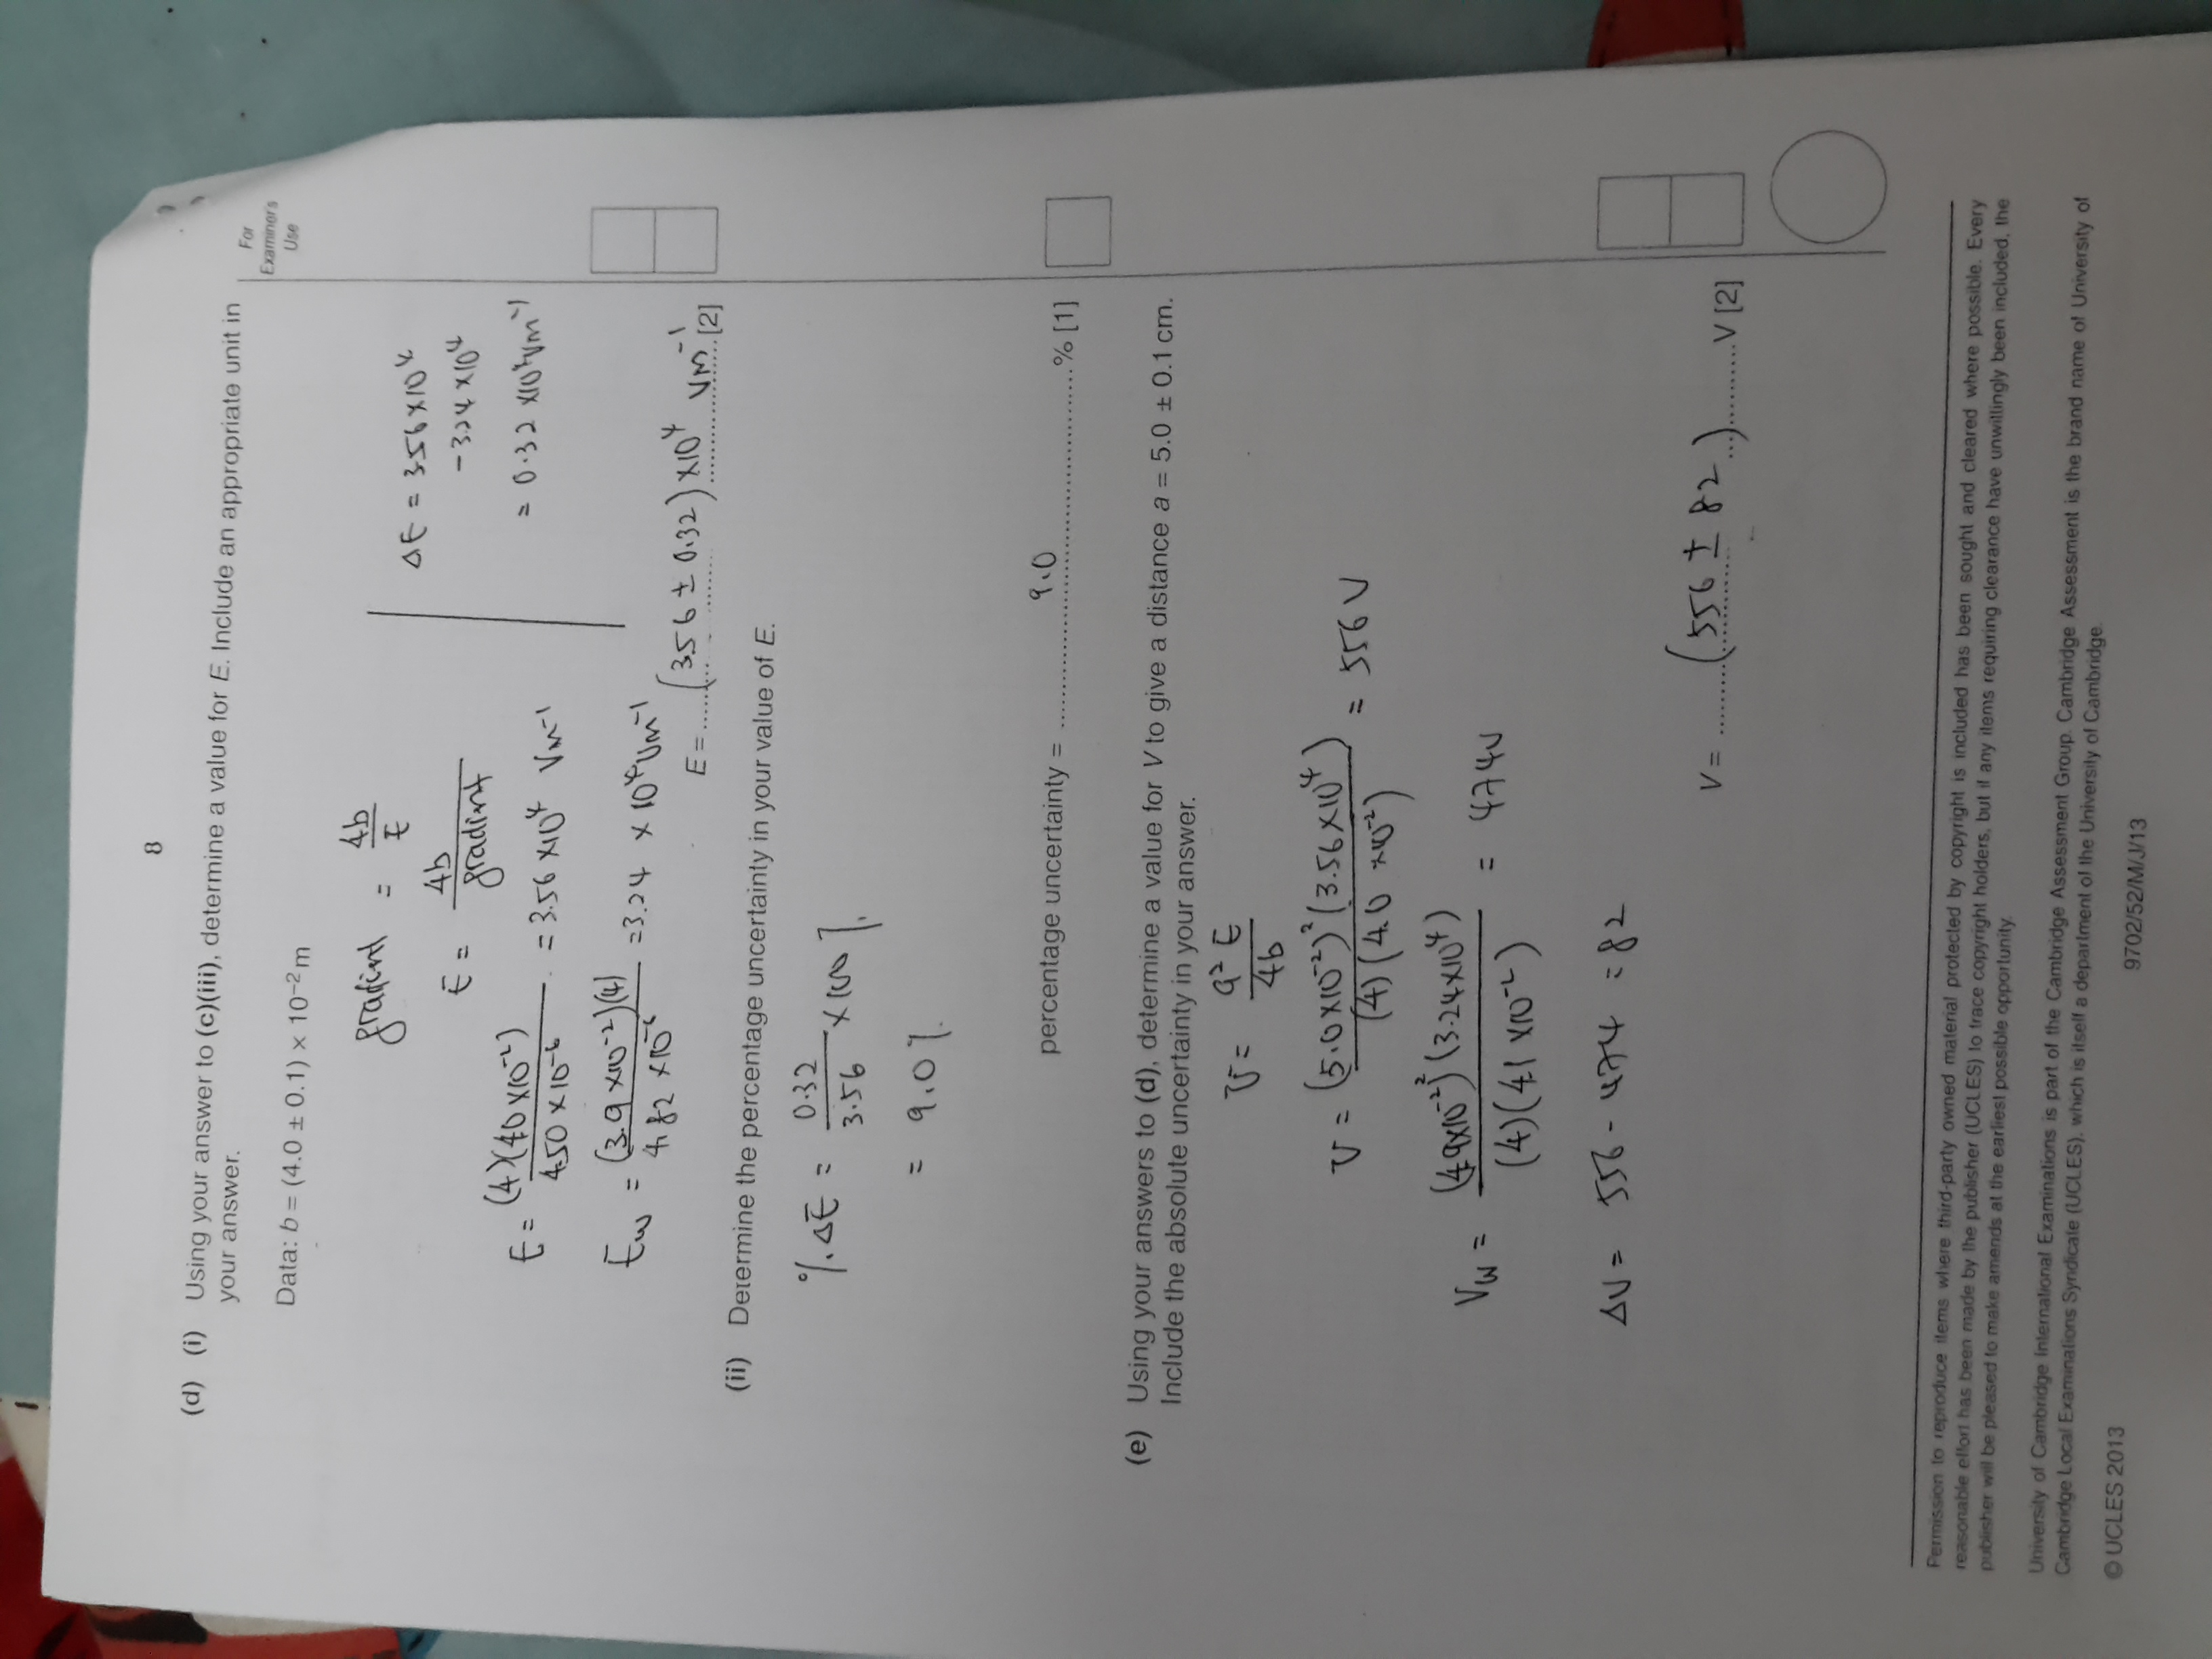 8
(d) (i) Using your answer to (c)(iii), determine a value for E. Include an appropriate unit in
your answer.
For
Examiner's
Use
Data: b = (4.0 ± 0.1) × 10⁻² m
gradient = 4b / E
E = 4b / gradient
E = (4)(4.0 × 10⁻²) / 4.50 × 10⁻⁶ = 3.56 × 10⁴ Vm⁻¹
Ew = (3.9 × 10⁻²)(4) / 4.82 × 10⁻⁶ = 3.24 × 10⁴ Vm⁻¹
ΔE = 3.56 × 10⁴
- 3.24 × 10⁴
= 0.32 × 10⁴ Vm⁻¹
E = ..... (3.56 ± 0.32) × 10⁴ Vm⁻¹ [2]
(ii) Determine the percentage uncertainty in your value of E.
% ΔE = 0.32 / 3.56 × 100 %
= 9.0 %
percentage uncertainty = ..... 9.0 ..... % [1]
(e) Using your answers to (d), determine a value for V to give a distance a = 5.0 ± 0.1 cm.
Include the absolute uncertainty in your answer.
V = a² E / 4b
V = (5.0 × 10⁻²)² (3.56 × 10⁴) / (4)(4.0 × 10⁻²) = 556 V
Vw = (4.9 × 10⁻²)² (3.24 × 10⁴) / (4)(4.1 × 10⁻²) = 474 V
ΔV = 556 - 474 = 82
V = ..... (556 ± 82) ..... V [2]
Permission to reproduce items where third-party owned material protected by copyright is included has been sought and cleared where possible. Every
reasonable effort has been made by the publisher (UCLES) to trace copyright holders, but if any items requiring clearance have unwittingly been included, the
publisher will be pleased to make amends at the earliest possible opportunity.
University of Cambridge International Examinations is part of the Cambridge Assessment Group. Cambridge Assessment is the brand name of University of
Cambridge Local Examinations Syndicate (UCLES), which is itself a department of the University of Cambridge.
© UCLES 2013
9702/52/M/J/13